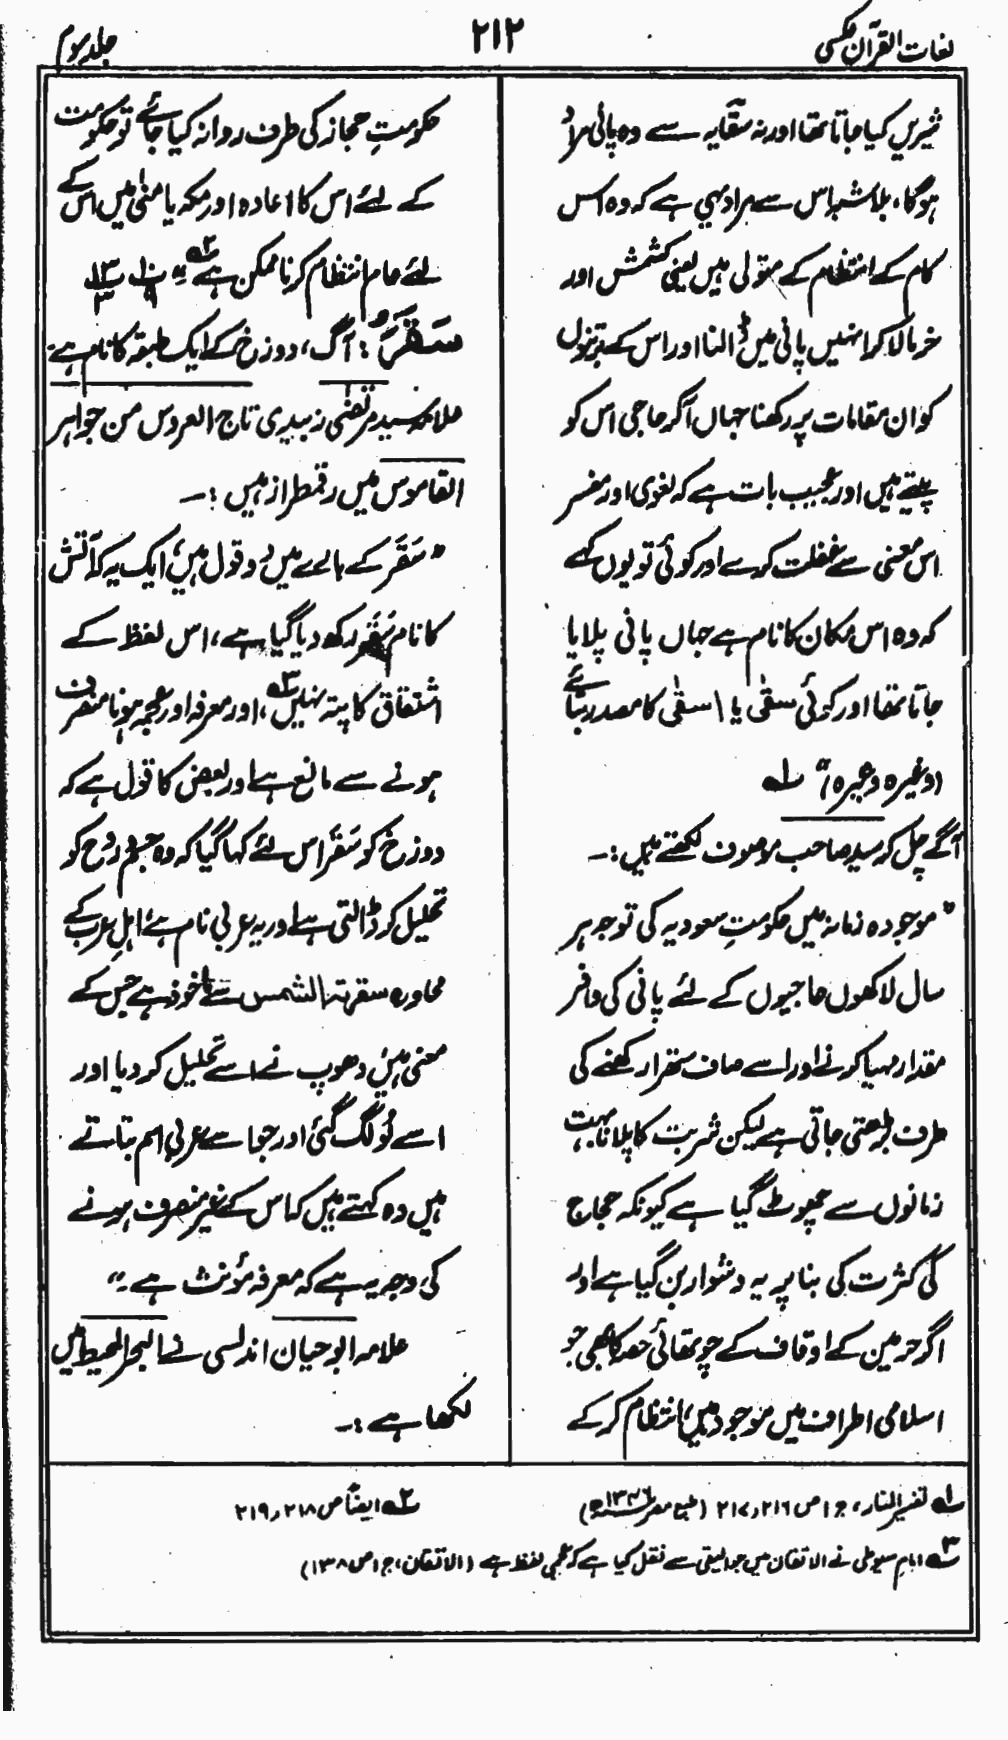 لغات القرآن عکسی
۲۱۲
جلد سوم
شیریں کیا جاتا تھا اور نہ سقایہ سے وہ پانی مراد
ہوگا، بلاشبہ اس سے مراد یہی ہے کہ وہ اس
کام کے انتظام کے متولی ہیں یعنی کشمش اور
خرما لاکر انہیں پانی میں ڈالنا اور اس کے برتنوں
کو ان مقامات پر رکھنا جہاں آکر حاجی اس کو
پیتے ہیں اور عجیب بات ہے کہ لغوی اور مفسر
اس معنی سے غفلت کرے اور کوئی تو یوں کہے
کہ وہ اس مکان کا نام ہے جہاں پانی پلایا
جاتا تھا اور کوئی سقٰی یا اسقٰی کا مصدر بتائے
(وغیرہ وغیرہ) " ۱؎
آگے چل کر سید صاحب موصوف لکھتے ہیں :۔
" موجودہ زمانہ میں حکومتِ سعودیہ کی توجہ ہر
سال لاکھوں حاجیوں کے لئے پانی کی وافر
مقدار مہیا کرنے اور اسے صاف ستھرا رکھنے کی
طرف بڑھتی جاتی ہے لیکن شربت کا پلانا بہت
زمانوں سے چھوٹ گیا ہے کیونکہ حجاج
کی کثرت کی بنا پر یہ دشوار بن گیا ہے اور
اگر حرمین کے اوقاف کے چوتھائی حصہ کا بھی جو
اسلامی اطراف میں موجود ہیں، انتظام کر کے
حکومتِ حجاز کی طرف روانہ کیا جائے تو حکومت
کے لئے اس کا اعادہ اور مکہ یا منیٰ میں اس کے
لئے عام انتظام کرنا ممکن ہے ۲؎ "
سَقَرَ : آگ، دوزخ کے ایک طبقہ کا نام ہے :
علامہ سید مرتضٰی زبیدی تاج العروس من جواہر
القاموس میں رقمطراز ہیں :۔
" سَقَر کے بارے میں دو قول ہیں، ایک یہ کہ آتش
کا نام سَقَر رکھ دیا گیا ہے، اس لفظ کے
اشتقاق کا پتہ نہیں ۳؎، اور معرفہ اور عجمہ ہونا منصرف
ہونے سے مانع ہے اور بعض کا قول ہے کہ
دوزخ کو سَقَر اس لئے کہا گیا کہ وہ جسم و روح کو
تحلیل کر ڈالتی ہے اور یہ عربی نام ہے اہلِ عرب کے
محاورہ سقرتہ الشمس سے ماخوذ ہے جس کے
معنی ہیں دھوپ نے اسے تحلیل کر دیا اور
اسے لُو لگ گئی، اور جو اسے عربی اسم بتاتے
ہیں وہ کہتے ہیں کہ اس کے غیر منصرف ہونے
کی وجہ یہ ہے کہ معرفہ مؤنث ہے "
علامہ ابو حیان اندلسی نے البحر المحیط میں
لکھا ہے :۔
۱؎ تفسیر المنار، ج ۱۰ ص ۲۱۶ و ۲۱۷ (طبع مصر ۱۳۴۶ھ)
۲؎ ایضاً ص ۲۱۸ و ۲۱۹
۳؎ امام سیوطی نے الاتقان میں جوالیقی سے نقل کیا ہے کہ عجمی لفظ ہے (الاتقان، ج ۱ ص ۱۳۸)